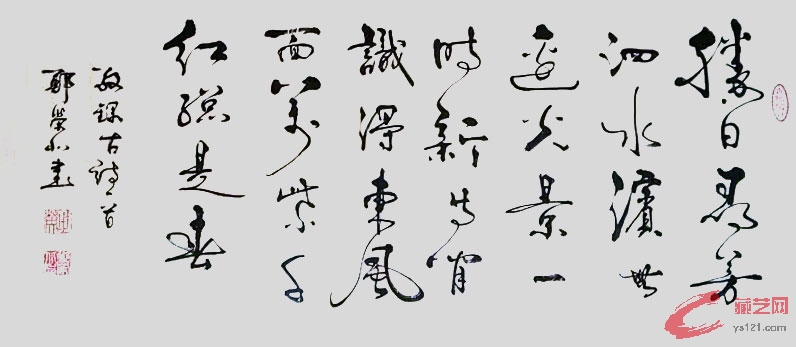 勝日尋芳
泗水濱無
邊光景一
時新等閒
識得東風
面萬紫千
紅總是春
古詩一首
鄭榮書
藏艺网
ys121.com